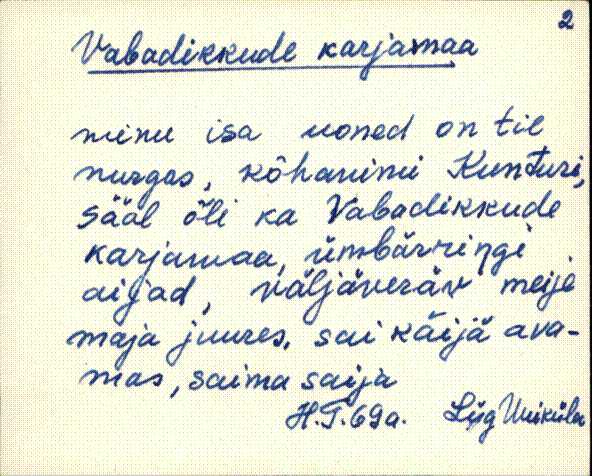 2
Vabadikkude karjamaa
minu isa uoned on til
nurgas, kõhanimi Kunturi,
sääl õli ka Vabadikkude
karjamaa, ümbärringi
aijad, väljäveräv meije
maja juures, sai käijä ava-
mas, saima saija
H.T. 69a. Lüg Uniküla